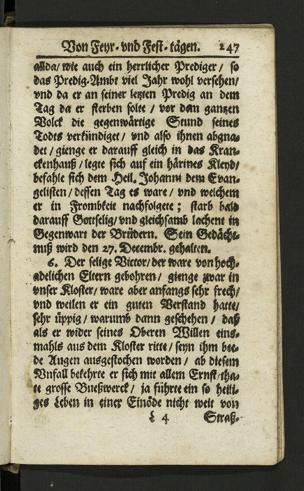 Von Feyr- vnd Fest-tägen. 247
allda/ wie auch ein herrlicher Prediger / so
das Predig-Ambt viel Jahr wohl versehen/
vnd da er an seiner letzten Predig an dem
Tag da er sterben solte / vor dem gantzen
Volck die gegenwärtige Stund seines
Todts verkündiget/ vnd also ihnen abgna-
det / gienge er darauff gleich in das Kran-
ckenhauß / legte sich auf ein härines Kleyd/
befahle sich dem Heil. Johanni dem Evan-
gelisten / dessen Tag es ware / vnd welchem
er in Frombkeit nachfolgete ; starb bald
darauff Gottselig/ vnd gleichsamb lachent in
Gegenwart der Brüdern. Sein Gedächt-
nuß wird den 27. Decembr. gehalten.
6. Der selige Victor/ der ware von hoch-
adelichen Eltern gebohren / gienge zwar in
vnser Kloster/ ware aber anfangs sehr frech/
vnd weilen er ein guten Verstand hatte/
sehr üppig / warumb dann geschehen / daß
als er wider seines Oberen Willen eins-
mahls aus dem Kloster ritte / seyn ihm bee-
de Augen ausgestochen worden / ab diesem
Vnfall bekehrte er sich mit allem Ernst/ tha-
te grosse Bueßwerck / ja führte ein so heili-
ges Leben in einer Einöde nicht weit von
L 4 Straß-